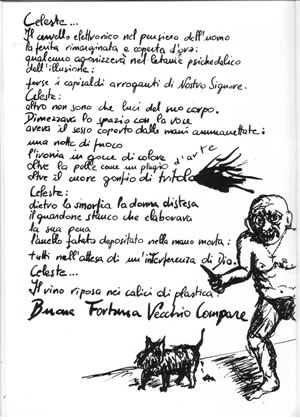 Celeste...
Il anello elettronico nel pensiero dell'uomo
la ferita rimarginata e coperta d'ora:
qualcuno agonizzerà nel letame psichedelico
dell'illusione:
forse i capisaldi arroganti di Nostro Signore.
Celeste:
altro non sono che luci del mio corpo.
Dimezzava lo spazio con la voce
aveva il sesso coperto dalle mani ammanettate:
una notte di fuoco
l'ironia in gocce di colore
oltre la pelle come un plagio d'arte
oltre il cuore gonfio di tritolo
Celeste:
dietro la smorfia la donna distesa
il guardone stanco che elaborava
la sua pena
l'anello fatato depositato nella mano morta:
tutti nell'attesa di un'interferenza di Dio.
Celeste...
Il vino riposa nei calici di plastica.
Buona Fortuna Vecchio Compare